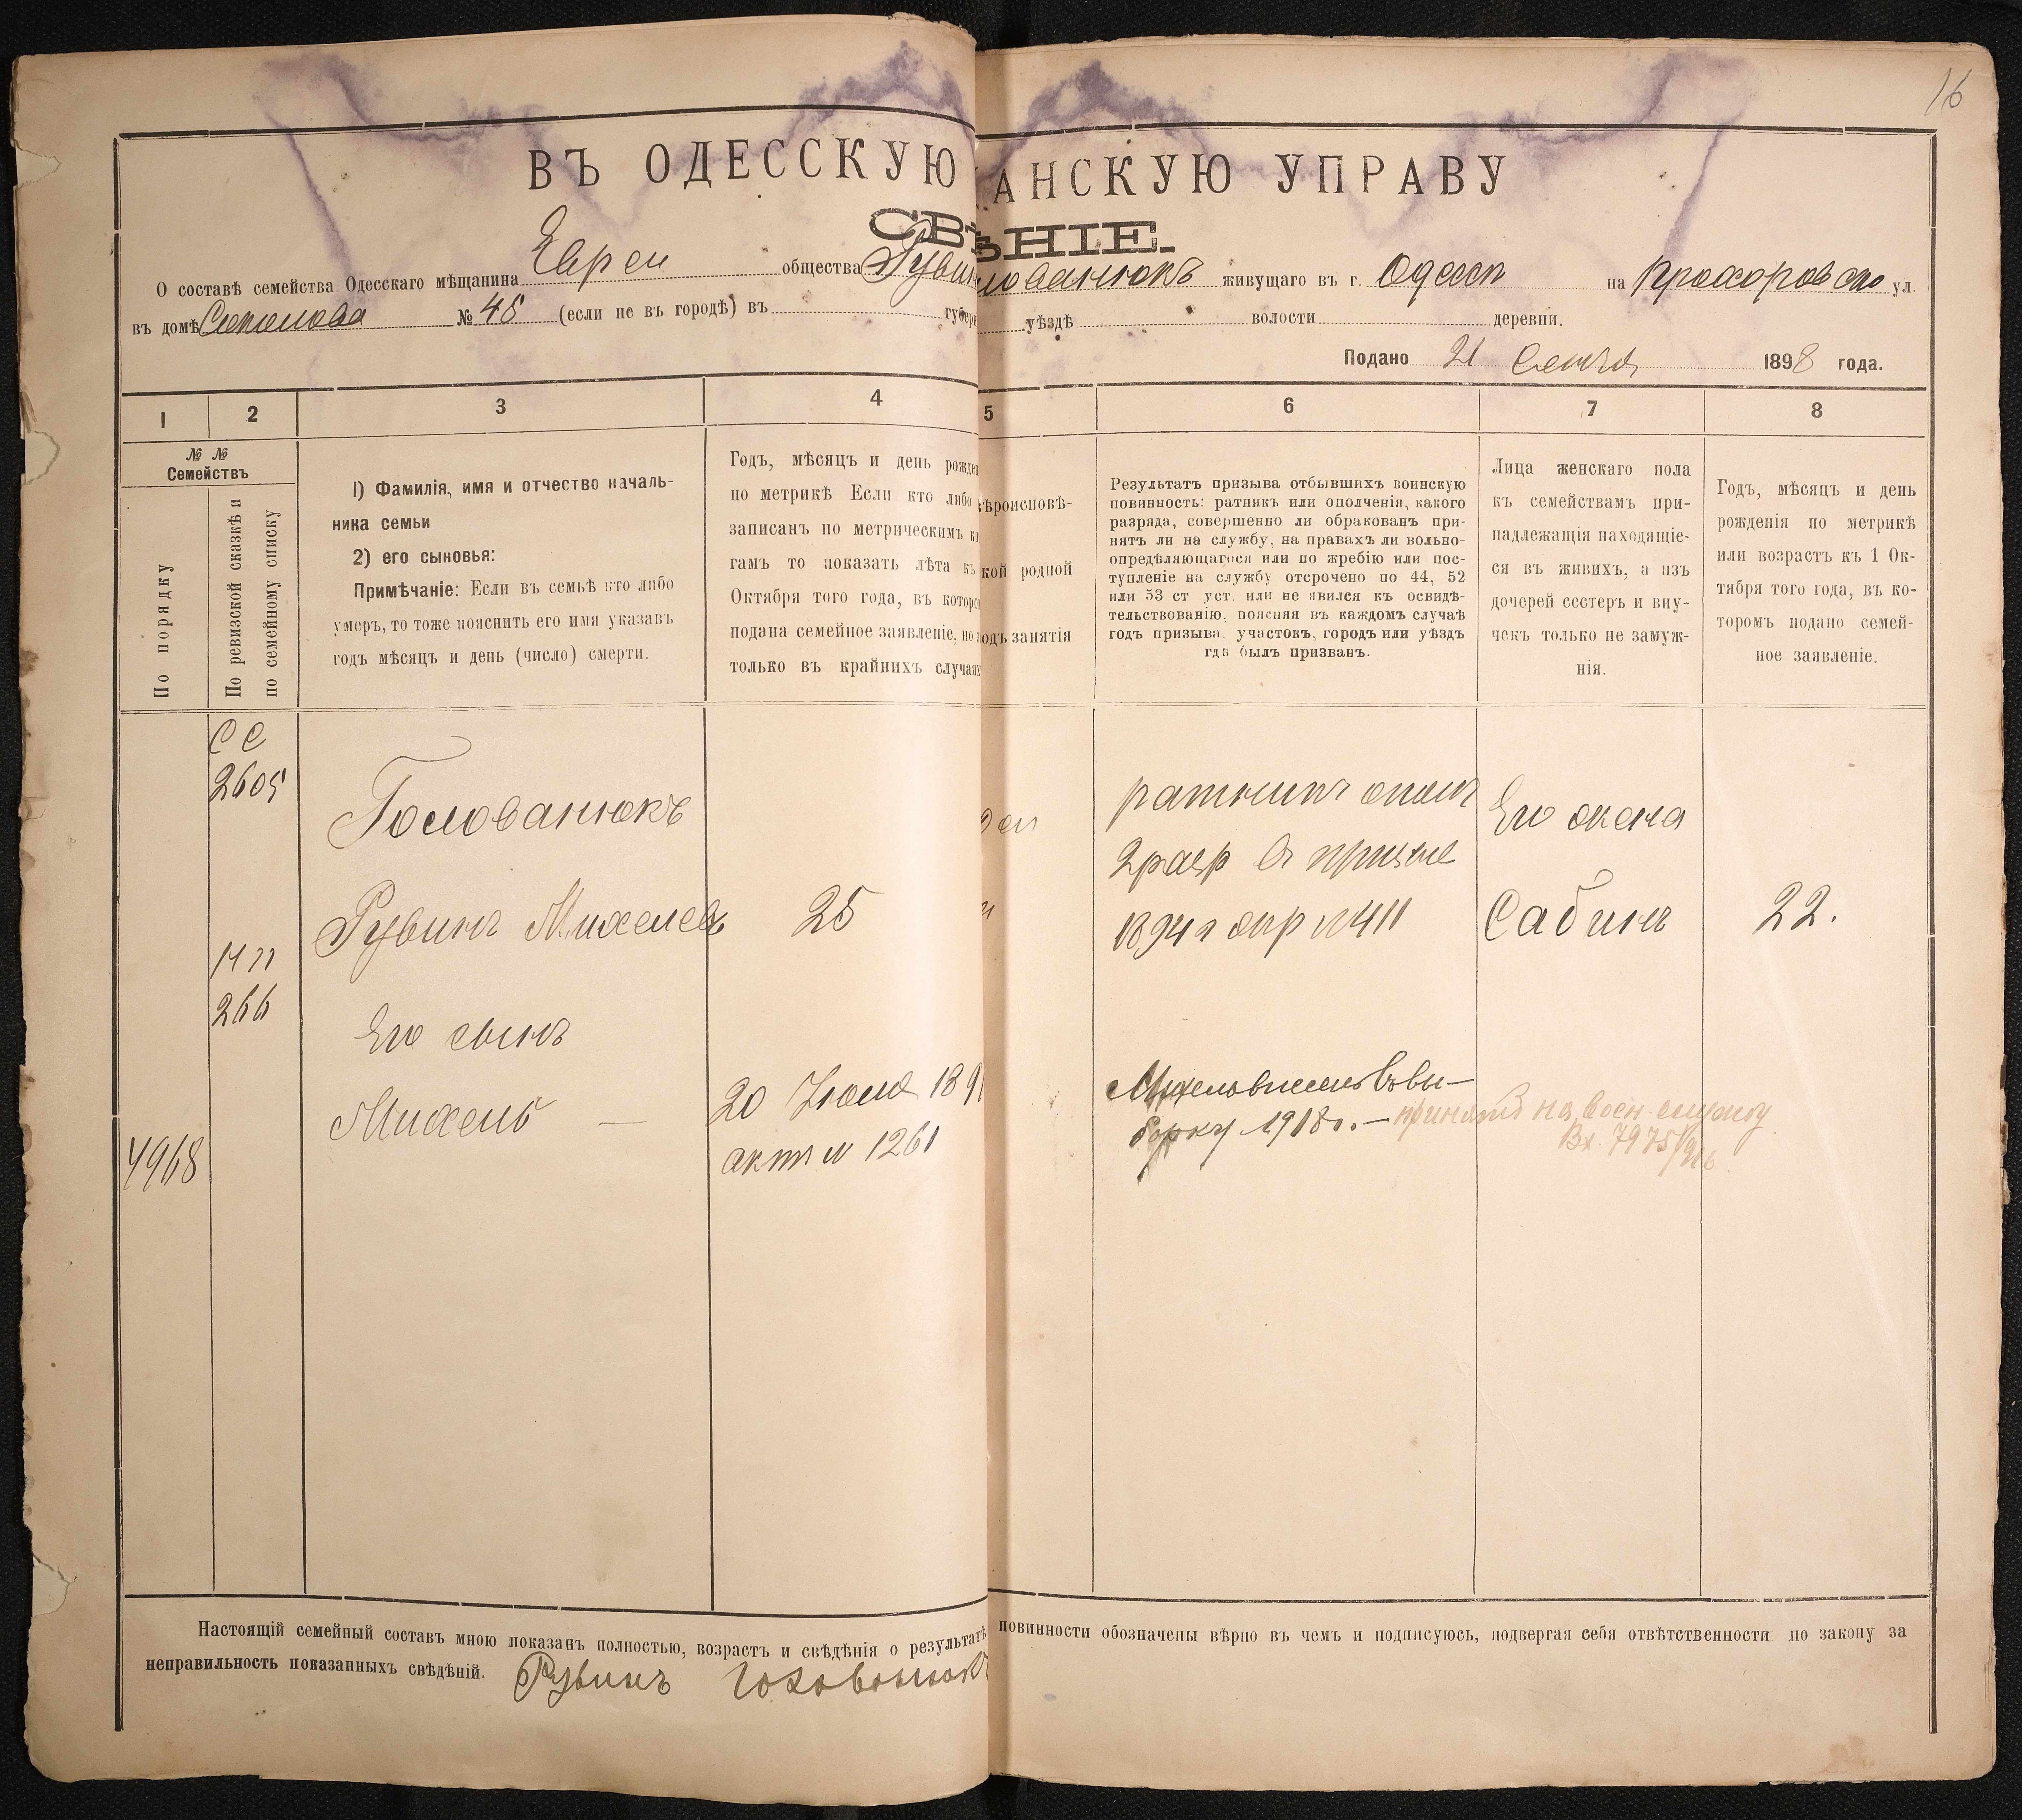 16
ВЪ ОДЕССКУЮ АНСКУЮ УПРАВУ
СВѢНІЕ.
О составѣ семейства Одесскаго мѣщанина Евреи общества Рувин ловганюкъ живущаго въ г. Одесси на Прохоровско ул.
въ домѣ Соколова № 48 (если не въ городѣ) въ губерн уѣздѣ волости деревни.
Подано 21 1898 года.
1 2 3 4 5 6 7 8
№ № Семействъ
По порядку
По ревизской сказкѣ и по семейному списку
1) Фамилія, имя и отчество началь-
ника семьи
2) его сыновья:
Примѣчаніе: Если въ семьѣ кто либо
умеръ, то тоже пояснить его имя указавъ
годъ мѣсяцъ и день (число) смерти.
Годъ, мѣсяцъ и день рожде
по метрикѣ Если кто либо
записанъ по метрическимъ кн
гамъ то показать лѣта къ
Октября того года, въ которо
подана семейное заявленіе, но
только въ крайнихъ случаях
ѣроисповѣ-
кой родной
одъ занятія
Результатъ призыва отбывшихъ воинскую
повинность: ратникъ или ополченія, какого
разряда, совершенно ли обракованъ при-
нятъ ли на службу, на правахъ ли вольно-
опредѣляющагося или по жребію или пос-
тупленіе на службу отсрочено по 44, 52
или 53 ст уст. или не явился къ освидѣ-
тельствованію. поясняя въ каждомъ случаѣ
годъ призыва. участокъ, городъ или уѣздъ
гдѣ былъ призванъ.
Лица женскаго пола
къ семействамъ при-
надлежащія находящіе-
ся въ живихъ, а изъ
дочерей сестеръ и вну-
чекъ только не замуж-
нія.
Годъ, мѣсяцъ и день
рожденія по метрикѣ
или возрастъ къ 1 Ок-
тября того года, въ ко-
торомъ подано семей-
ное заявленіе.
СС
2605
Голованюкъ
ратникъ опол
Его жена
2 разр въ призыве
Рувинъ Михелевъ 25
1894 г №411
Сабинъ 22.
266
Его сынъ
Михель — 20 Июля 189
актъ № 1261
Михель внесенъ въ вы-
борку 1918 г. — принятъ на воен. службу
Вх. 7975/916
4968
Настоящій семейный составъ мною показанъ полностью, возрастъ и свѣдѣнія о результатѣ повинности обозначены вѣрно въ чемъ и подписуюсь, подвергая себя отвѣтственности по закону за
неправильность показанныхъ свѣдѣній. Рувинъ Голованюкъ